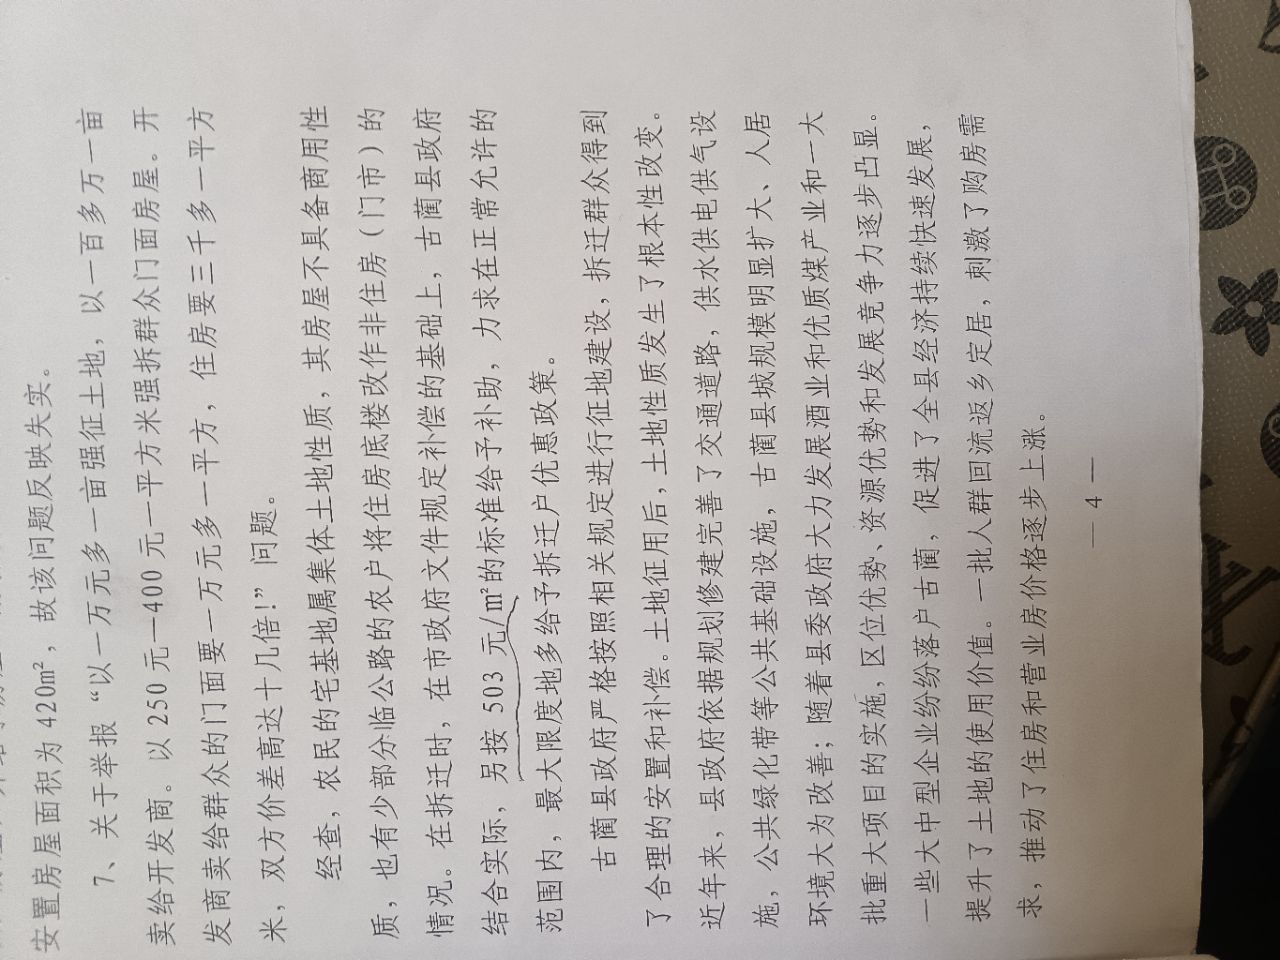 安置房屋面积为 420m²，故该问题反映失实。
7、关于举报“以一万元多一亩强征土地，以一百多万一亩
卖给开发商。以 250 元—400 元一平方米强拆群众门面房屋。开
发商卖给群众的门面要一万元多一平方，住房要三千多一平方
米，双方价差高达十几倍！”问题。
经查，农民的宅基地属集体土地性质，其房屋不具备商用性
质，也有少部分临公路的农户将住房底楼改作非住房（门市）的
情况。在拆迁时，在市政府文件规定补偿的基础上，古蔺县政府
结合实际，另按 503 元/m²的标准给予补助，力求在正常允许的
范围内，最大限度地多给予拆迁户优惠政策。
古蔺县政府严格按照相关规定进行征地建设，拆迁群众得到
了合理的安置和补偿。土地征用后，土地性质发生了根本性改变。
近年来，县政府依据规划修建完善了交通道路，供水供电供气设
施，公共绿化带等公共基础设施，古蔺县城规模明显扩大、人居
环境大为改善；随着县委政府大力发展酒业和优质煤产业和一大
批重大项目的实施，区位优势、资源优势和发展竞争力逐步凸显。
一些大中型企业纷纷落户古蔺，促进了全县经济持续快速发展，
提升了土地的使用价值。一批人群回流返乡定居，刺激了购房需
求，推动了住房和营业房价格逐步上涨。
— 4 —